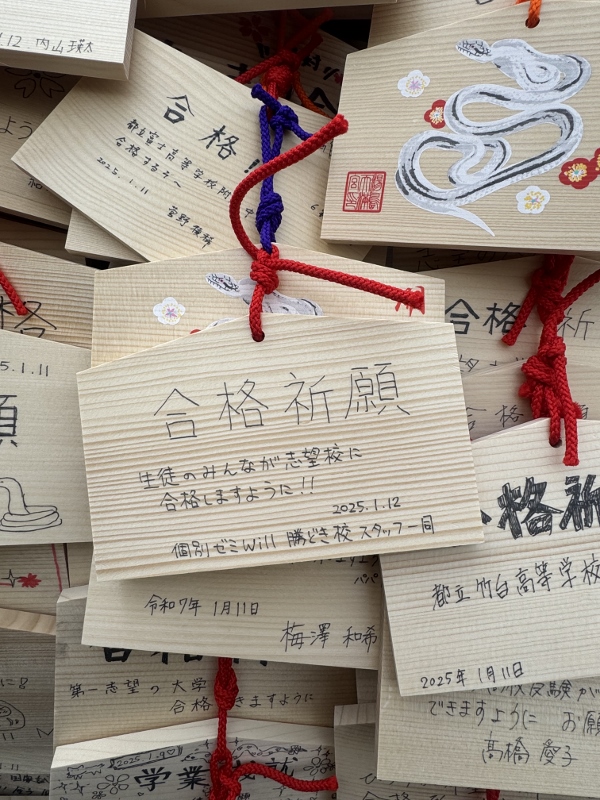 1.12 内山瑛太
合格!!
都立富士高等学校附
合格するぞ〜
2025.1.11
菅野
合格祈願
生徒のみんなが志望校に
合格しますように!!
2025.1.12
個別ゼミWill 勝どき校 スタッフ一同
パパ
令和7年 1月11日
梅澤 和希
第一志望の大学
合格 きますように
2025.1.9
学業成就
5.1.11
願
合格 祈
合格
格祈
都立竹台高等学校
2025年 1月11日
できますように お願
高橋 愛子